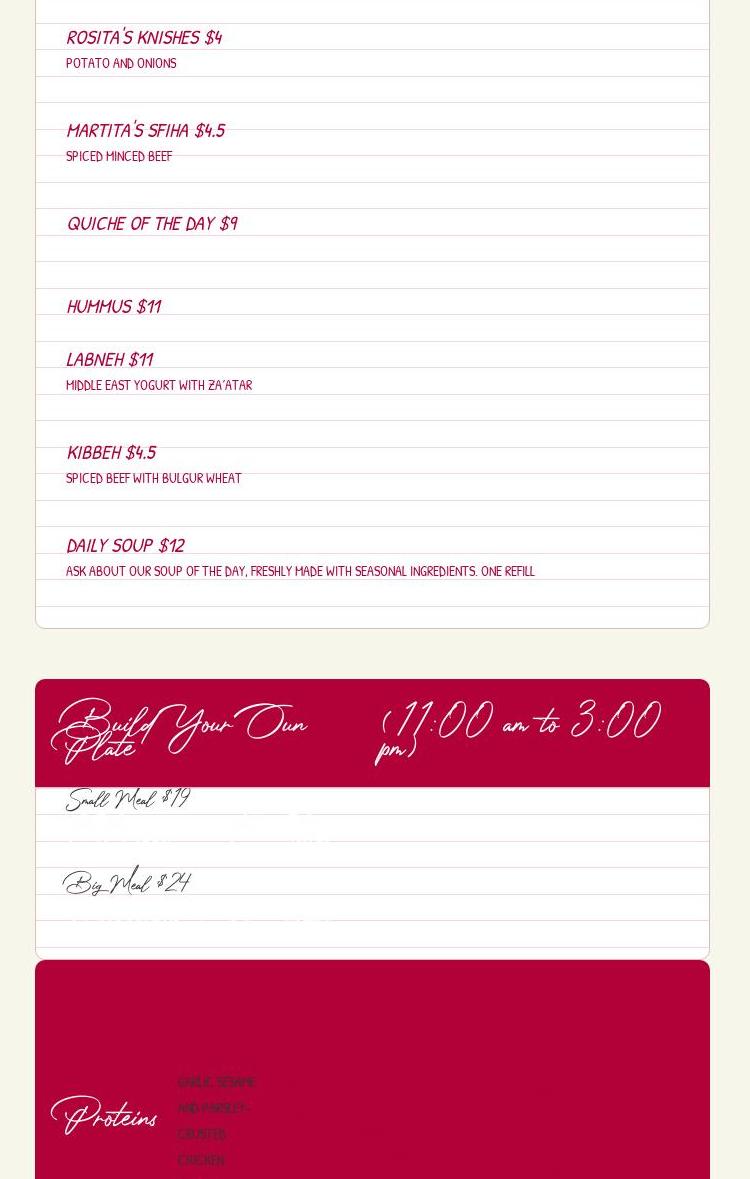 ROSITA'S KNISHES $4
POTATO AND ONIONS
MARTITA'S SFIHA $4.5
SPICED MINCED BEEF
QUICHE OF THE DAY $9
HUMMUS $11
LABNEH $11
MIDDLE EAST YOGURT WITH ZA'ATAR
KIBBEH $4.5
SPICED BEEF WITH BULGUR WHEAT
DAILY SOUP $12
ASK ABOUT OUR SOUP OF THE DAY, FRESHLY MADE WITH SEASONAL INGREDIENTS. ONE REFILL
Build Your Own
Plate
(11:00 am to 3:00
pm)
Small Meal $19
Big Meal $24
Proteins
GARLIC, SESAME
AND PARSLEY-
CRUSTED
CHICKEN